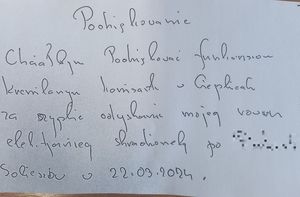 Podziękowanie
Chciałbym Podziękować funkcjonariuszom
kryminalnym komisariatu w Cieplicach
za szybkie odzyskanie mojego roweru
elektrycznego skradzionego po
Sobieszów w 22.03.2024.